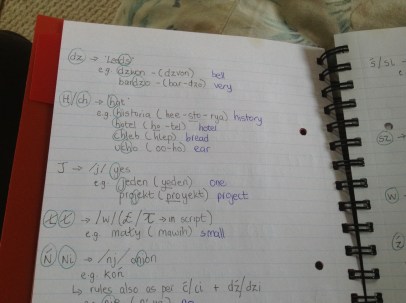 dz → 'Leeds'
e.g. dzwon - (dzvon) bell
bardzo - (bar-dzo) very
H/ch → 'hat'
e.g. historia (hee-sto-rya) history
hotel (ho-tel) hotel
chleb (hlep) bread
ucho (oo-ho) ear
J → /j/ yes
e.g. jeden (yeden) one
projekt (proyekt) project
→ /w/ ( → in script)
e.g. mały (mawih) small
Ń Ni → /nj/ onion
e.g. koń
↳ rules also as per ć/ci + dź/dzi
nie no
ś/si
sz
w